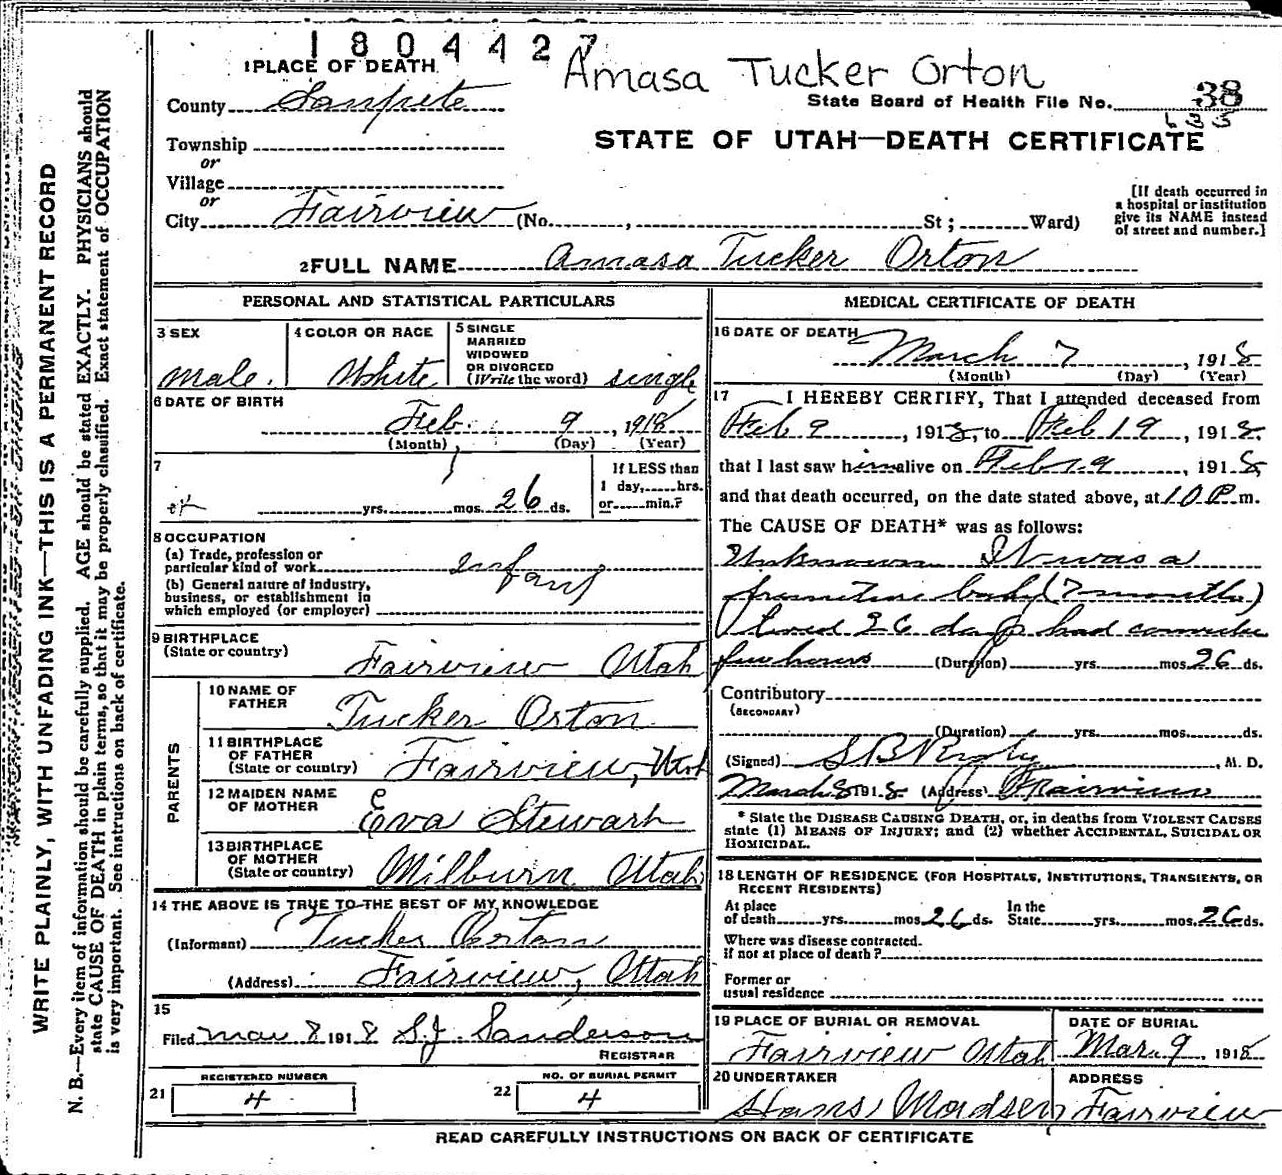 1804427
Amasa Tucker Orton
1 PLACE OF DEATH
County Sanpete
State Board of Health File No. 38
Township
or
Village
or
City Fairview (No. , St ; Ward)
STATE OF UTAH—DEATH CERTIFICATE
[If death occurred in
a hospital or institution
give its NAME instead
of street and number.]
2 FULL NAME Amasa Tucker Orton
PERSONAL AND STATISTICAL PARTICULARS
3 SEX
Male.
4 COLOR OR RACE
White
5 SINGLE
MARRIED
WIDOWED
OR DIVORCED
(Write the word) single
6 DATE OF BIRTH
Feb. 9, 1918
(Month) (Day) (Year)
7
yrs. mos. 26 ds.
If LESS than
1 day, hrs.
or min.?
8 OCCUPATION
(a) Trade, profession or
particular kind of work infant
(b) General nature of industry,
business, or establishment in
which employed (or employer)
9 BIRTHPLACE
(State or country) Fairview Utah
PARENTS
10 NAME OF
FATHER Tucker Orton
11 BIRTHPLACE
OF FATHER
(State or country) Fairview, Utah
12 MAIDEN NAME
OF MOTHER Eva Stewart
13 BIRTHPLACE
OF MOTHER
(State or country) Milburn Utah
14 THE ABOVE IS TRUE TO THE BEST OF MY KNOWLEDGE
(Informant) Tucker Orton
(Address) Fairview, Utah
15
Filed Mar 8 1918 S.J. Sanderson
REGISTRAR
REGISTERED NUMBER
21 4
NO. OF BURIAL PERMIT
22 4
MEDICAL CERTIFICATE OF DEATH
16 DATE OF DEATH
March 7, 1918
(Month) (Day) (Year)
17 I HEREBY CERTIFY, That I attended deceased from
Feb 9, 1918, to Feb 19, 1918.
that I last saw him alive on Feb 19, 1918
and that death occurred, on the date stated above, at 10 P m.
The CAUSE OF DEATH* was as follows:
Unknown It was a
premature baby (7 months)
lived 26 days had
few hours (Duration) yrs. mos. 26 ds.
Contributory
(SECONDARY)
(Duration) yrs. mos. ds.
(Signed) S B Rigby, M. D.
March 8 1918 (Address) Fairview
* State the DISEASE CAUSING DEATH, or, in deaths from VIOLENT CAUSES
state (1) MEANS OF INJURY; and (2) whether ACCIDENTAL, SUICIDAL OR
HOMICIDAL.
18 LENGTH OF RESIDENCE (FOR HOSPITALS, INSTITUTIONS, TRANSIENTS, OR
RECENT RESIDENTS)
At place
of death yrs. mos. 26 ds.
In the
State yrs. mos. 26 ds.
Where was disease contracted.
if not at place of death?
Former or
usual residence
19 PLACE OF BURIAL OR REMOVAL
Fairview Utah
DATE OF BURIAL
Mar. 9 1918
20 UNDERTAKER
Hans Madsen
ADDRESS
Fairview
READ CAREFULLY INSTRUCTIONS ON BACK OF CERTIFICATE
WRITE PLAINLY, WITH UNFADING INK—THIS IS A PERMANENT RECORD
N. B.—Every item of information should be carefully supplied. AGE should be stated EXACTLY. PHYSICIANS should
state CAUSE OF DEATH in plain terms, so that it may be properly classified. Exact statement of OCCUPATION
is very important. See instructions on back of certificate.